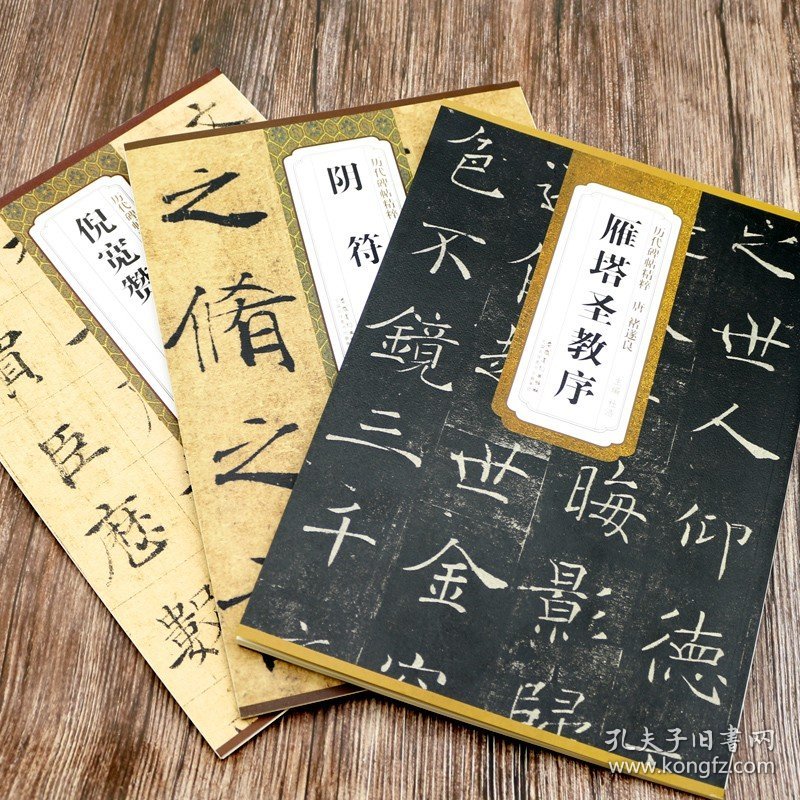 历代碑帖精粹 唐 褚遂良
雁塔圣教序
之世人仰德
晦影歸
世金容
色不鏡三千
历代碑帖精粹
阴符
之脩之
历代碑帖
倪宽赞
買臣歷數
孔夫子旧书网
www.kongfz.com